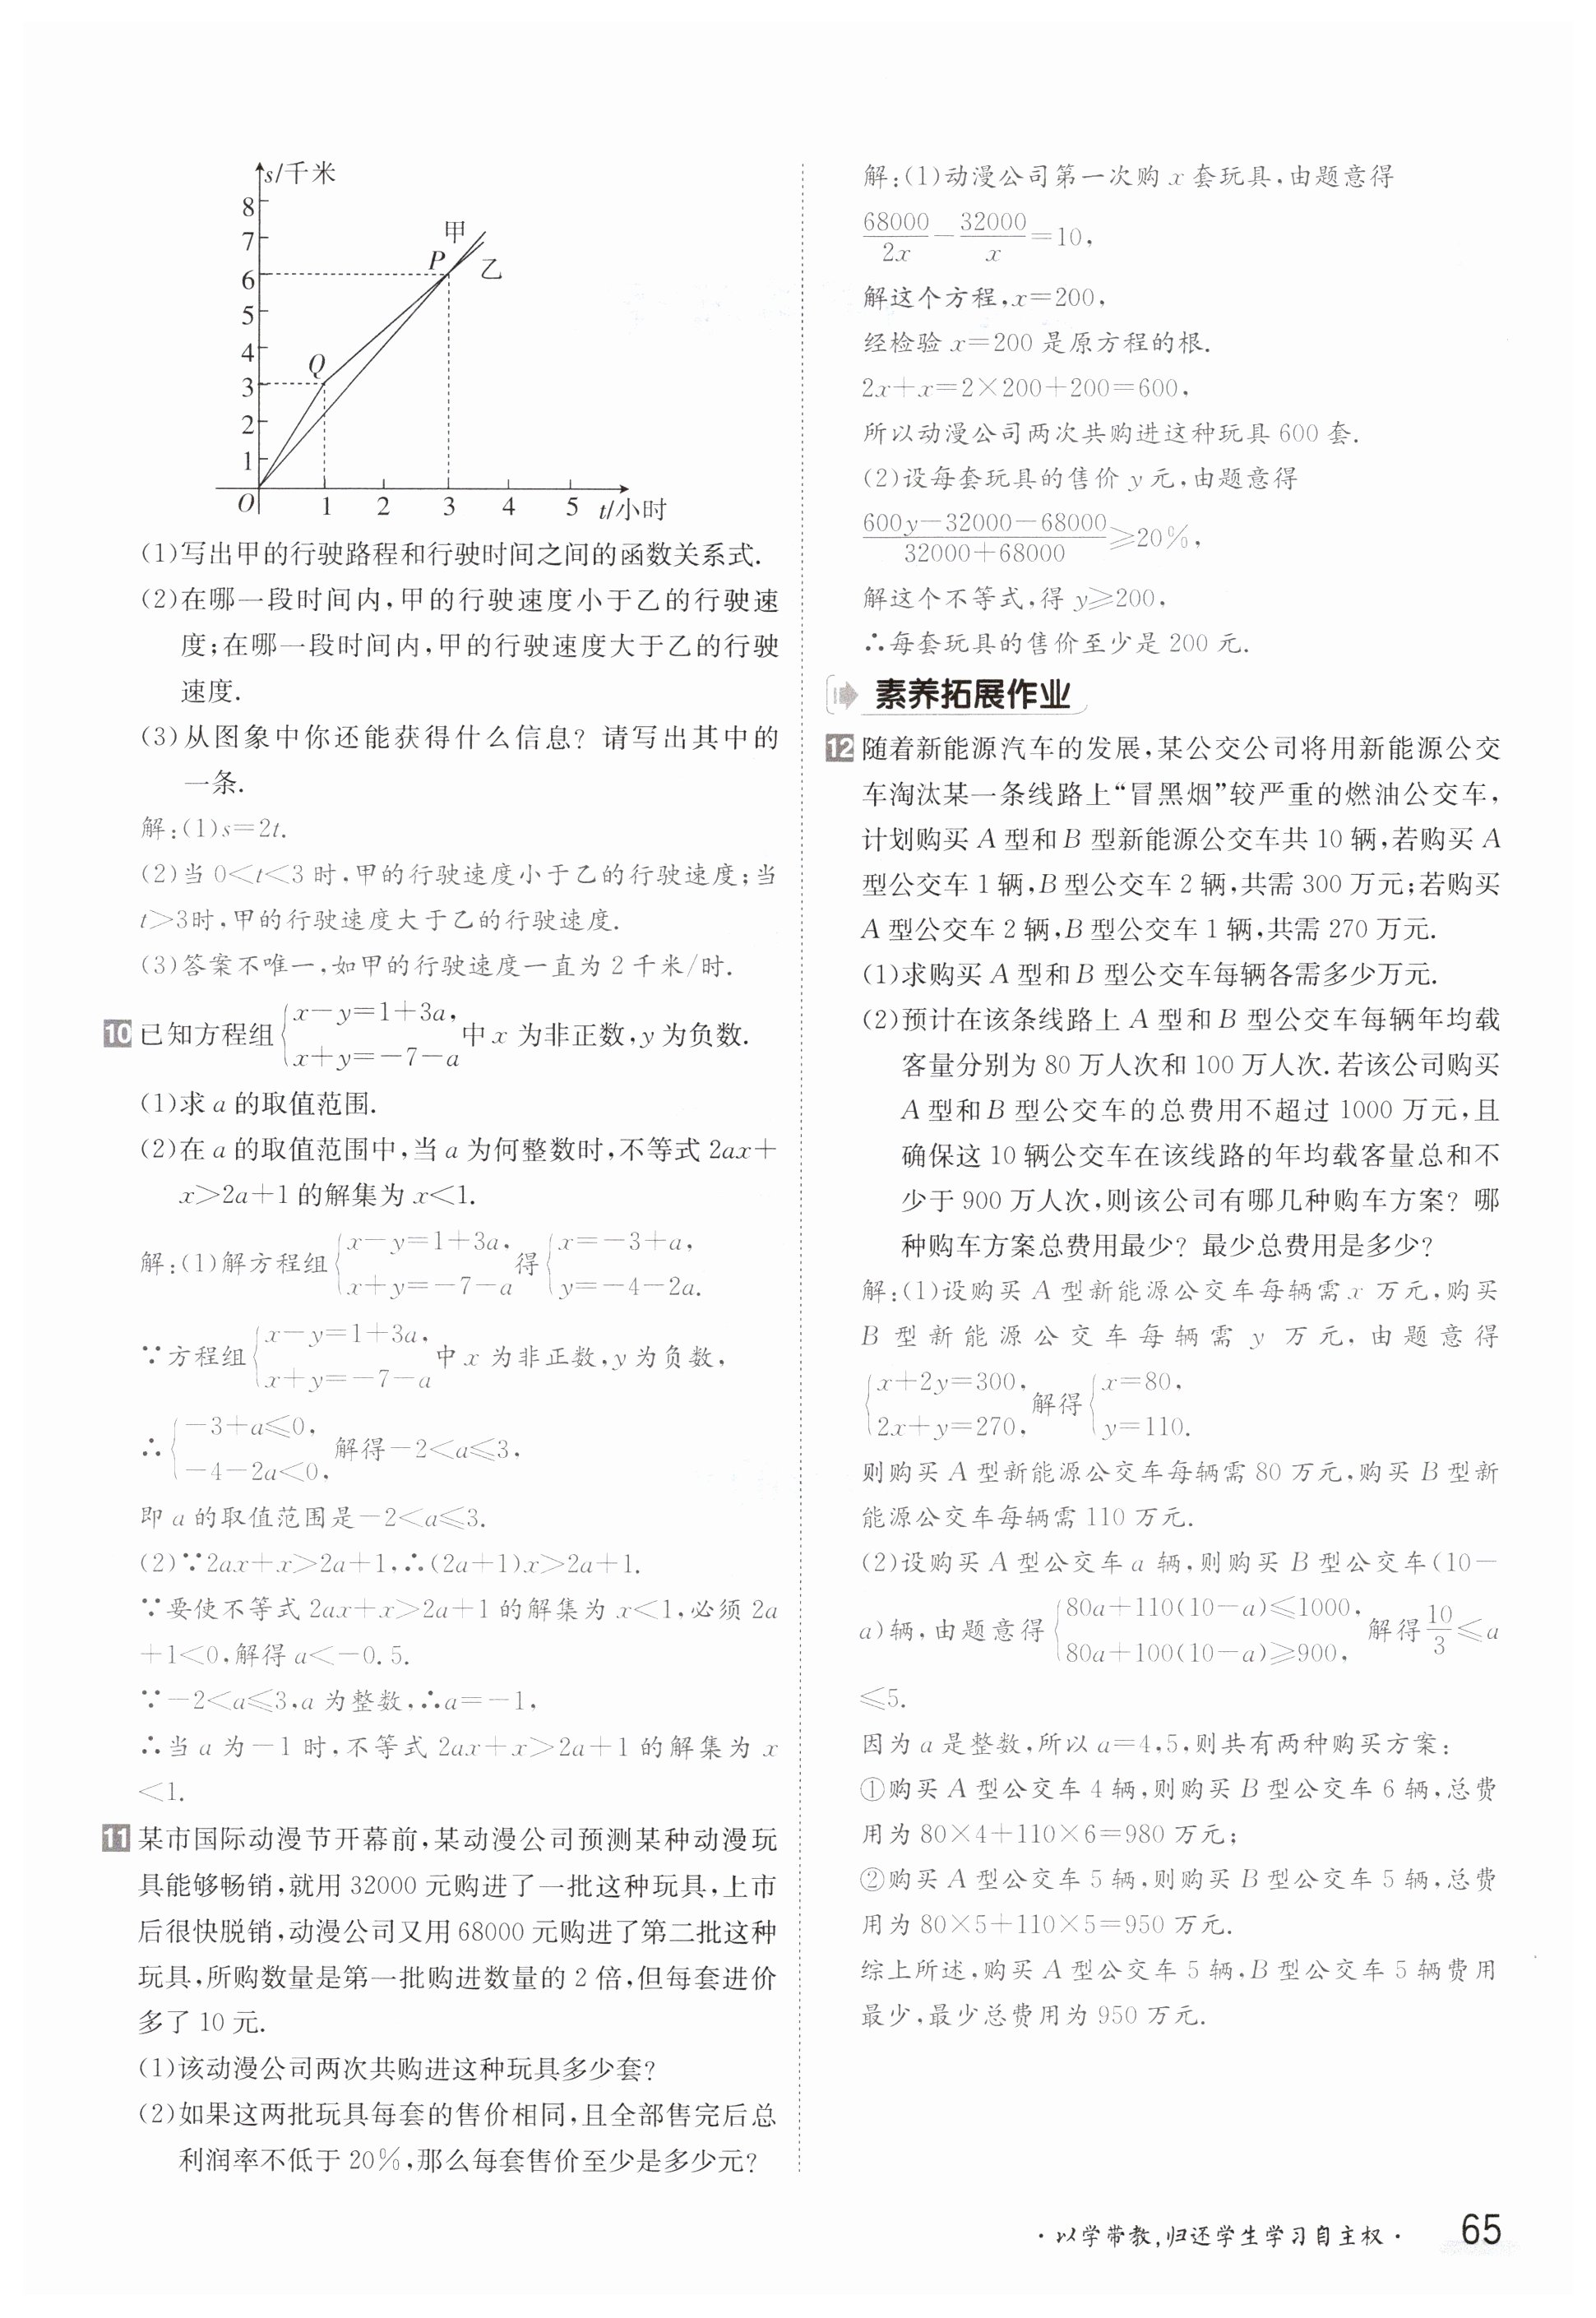 s/千米
8
7
6
5
4
3
2
1
O
1
2
3
4
5
t/小时
甲
P
乙
Q
(1)写出甲的行驶路程和行驶时间之间的函数关系式.
(2)在哪一段时间内,甲的行驶速度小于乙的行驶速
度;在哪一段时间内,甲的行驶速度大于乙的行驶
速度.
(3)从图象中你还能获得什么信息? 请写出其中的
一条.
解:(1)s=2t.
(2)当 0<t<3 时,甲的行驶速度小于乙的行驶速度;当
t>3时,甲的行驶速度大于乙的行驶速度.
(3)答案不唯一,如甲的行驶速度一直为 2 千米/时.
10 已知方程组{x-y=1+3a, x+y=-7-a 中 x 为非正数,y 为负数.
(1)求 a 的取值范围.
(2)在 a 的取值范围中,当 a 为何整数时,不等式 2ax+
x>2a+1 的解集为 x<1.
解:(1)解方程组{x-y=1+3a, x+y=-7-a 得{x=-3+a, y=-4-2a.
∵方程组{x-y=1+3a, x+y=-7-a 中 x 为非正数,y 为负数,
∴{-3+a≤0, -4-2a<0, 解得-2<a≤3,
即 a 的取值范围是-2<a≤3.
(2)∵2ax+x>2a+1,∴(2a+1)x>2a+1.
∵要使不等式 2ax+x>2a+1 的解集为 x<1,必须 2a
+1<0,解得 a<-0.5.
∵-2<a≤3,a 为整数,∴a=-1,
∴当 a 为-1 时,不等式 2ax+x>2a+1 的解集为 x
<1.
11 某市国际动漫节开幕前,某动漫公司预测某种动漫玩
具能够畅销,就用 32000 元购进了一批这种玩具,上市
后很快脱销,动漫公司又用 68000 元购进了第二批这种
玩具,所购数量是第一批购进数量的 2 倍,但每套进价
多了 10 元.
(1)该动漫公司两次共购进这种玩具多少套?
(2)如果这两批玩具每套的售价相同,且全部售完后总
利润率不低于 20%,那么每套售价至少是多少元?
解:(1)动漫公司第一次购 x 套玩具,由题意得
68000/2x-32000/x=10,
解这个方程,x=200,
经检验 x=200 是原方程的根.
2x+x=2×200+200=600,
所以动漫公司两次共购进这种玩具 600 套.
(2)设每套玩具的售价 y 元,由题意得
600y-32000-68000/32000+68000≥20%,
解这个不等式,得 y≥200,
∴每套玩具的售价至少是 200 元.
素养拓展作业
12 随着新能源汽车的发展,某公交公司将用新能源公交
车淘汰某一条线路上“冒黑烟”较严重的燃油公交车,
计划购买 A 型和 B 型新能源公交车共 10 辆,若购买 A
型公交车 1 辆,B 型公交车 2 辆,共需 300 万元;若购买
A 型公交车 2 辆,B 型公交车 1 辆,共需 270 万元.
(1)求购买 A 型和 B 型公交车每辆各需多少万元.
(2)预计在该条线路上 A 型和 B 型公交车每辆年均载
客量分别为 80 万人次和 100 万人次.若该公司购买
A 型和 B 型公交车的总费用不超过 1000 万元,且
确保这 10 辆公交车在该线路的年均载客量总和不
少于 900 万人次,则该公司有哪几种购车方案? 哪
种购车方案总费用最少? 最少总费用是多少?
解:(1)设购买 A 型新能源公交车每辆需 x 万元,购买
B 型新能源公交车每辆需 y 万元,由题意得
{x+2y=300, 2x+y=270, 解得{x=80, y=110.
则购买 A 型新能源公交车每辆需 80 万元,购买 B 型新
能源公交车每辆需 110 万元.
(2)设购买 A 型公交车 a 辆,则购买 B 型公交车(10-
a)辆,由题意得{80a+110(10-a)≤1000, 80a+100(10-a)≥900, 解得10/3≤a
≤5.
因为 a 是整数,所以 a=4,5,则共有两种购买方案:
①购买 A 型公交车 4 辆,则购买 B 型公交车 6 辆,总费
用为 80×4+110×6=980 万元;
②购买 A 型公交车 5 辆,则购买 B 型公交车 5 辆,总费
用为 80×5+110×5=950 万元.
综上所述,购买 A 型公交车 5 辆,B 型公交车 5 辆费用
最少,最少总费用为 950 万元.
·以学带教,归还学生学习自主权· 65